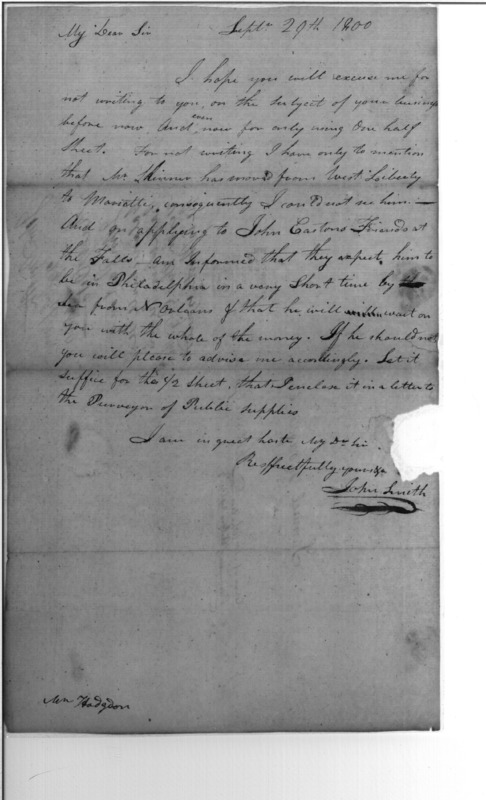 My Dear Sir Septr 29th 1800
I hope you will excuse me for
not writing to you, on the subject of your business
before now, And even now for only using One half
Sheet. For not writing I have only to mention
that Mr Skinner has moved from West Liberty
to Marietta, consequently I could not see him. —
And on applying to John Eastons Friends at
the Falls, am Informed that they expect him to
be in Philadelphia in a very Short time by
sea from N. Orleans & that he will wait on
you with the whole of the money. If he should not
you will please to advise me accordingly. Let it
suffice for the 1/2 Sheet, that I enclose it in a letter to
the Purveyor of Public Supplies
I am in great haste My Dr Sir
Respectfully yours &c
John Smith
Mr Hodgdon